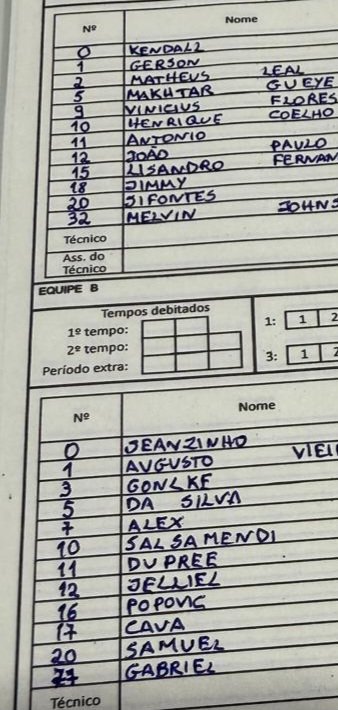 Nº Nome
0 KENDALL
1 GERSON
2 MATHEUS LEAL
5 MAKHTAR GUEYE
9 VINICIUS FLORES
10 HENRIQUE COELHO
11 ANTONIO
12 JOÃO PAULO
15 LISANDRO FERNAN
18 JIMMY
20 SIFONTES
32 MELVIN JOHNS
Técnico
Ass. do
Técnico
EQUIPE B
Tempos debitados
1º tempo: 1: 1 2
2º tempo:
Período extra: 3: 1 2
Nº Nome
0 JEANZINHO VIEI
1 AUGUSTO
3 GONLKE
5 DA SILVA
7 ALEX
10 SALSAMENDI
11 DUPREE
12 JELLIEL
16 POPOVIC
17 CAVA
20 SAMUEL
GABRIEL
Técnico